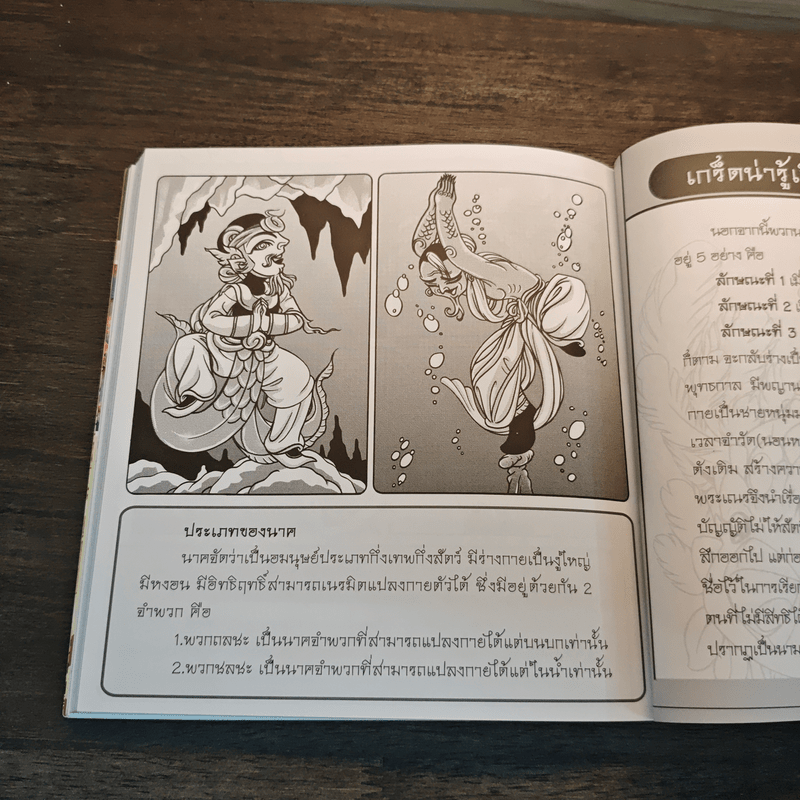 ประเภทของนาค
นาคจัดว่าเป็นอมนุษย์ประเภทกึ่งเทพกึ่งสัตว์ มีร่างกายเป็นงูใหญ่
มีหงอน มีอิทธิฤทธิ์สามารถเนรมิตแปลงกายตัวได้ ซึ่งมีอยู่ด้วยกัน 2
จำพวก คือ
1.พวกถลชะ เป็นนาคจำพวกที่สามารถแปลงกายได้แต่บนบกเท่านั้น
2.พวกชลชะ เป็นนาคจำพวกที่สามารถแปลงกายได้แต่ในน้ำเท่านั้น
เกร็ดน่ารู้
นอกจากนี้พวกน
อยู่ 5 อย่าง คือ
ลักษณะที่ 1
ลักษณะที่ 2
ลักษณะที่ 3
ก็ตาม จะกลับร่างเป็
พุทธกาล มีพญาน
กายเป็นชายหนุ่มม
เวลาจำวัด(นอนห
ดังเดิม สร้างควา
พระเณรจึงนำเรื่อ
บัญญัติไม่ให้สัต
สึกออกไป แต่ก่อ
ชื่อไว้ในการเรีย
ตนที่ไม่มีสิทธิได้
ปรากฏเป็นนาม